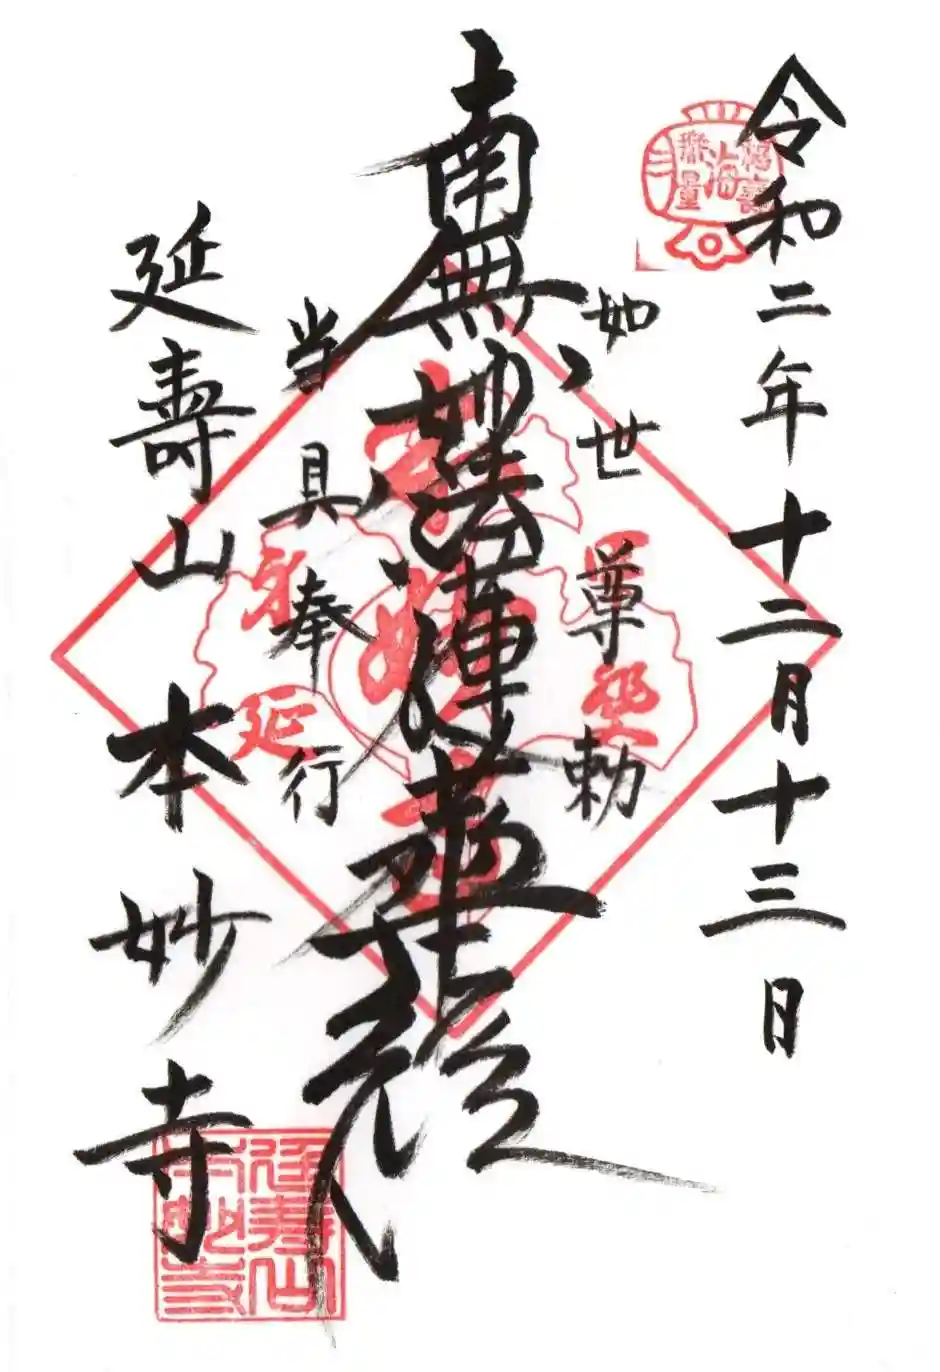 令和二年十二月十三日
福壽
海
無量
如世尊勅
南無妙法蓮華経
当具奉行
妙
延
延壽山本妙寺
延壽山
本妙寺